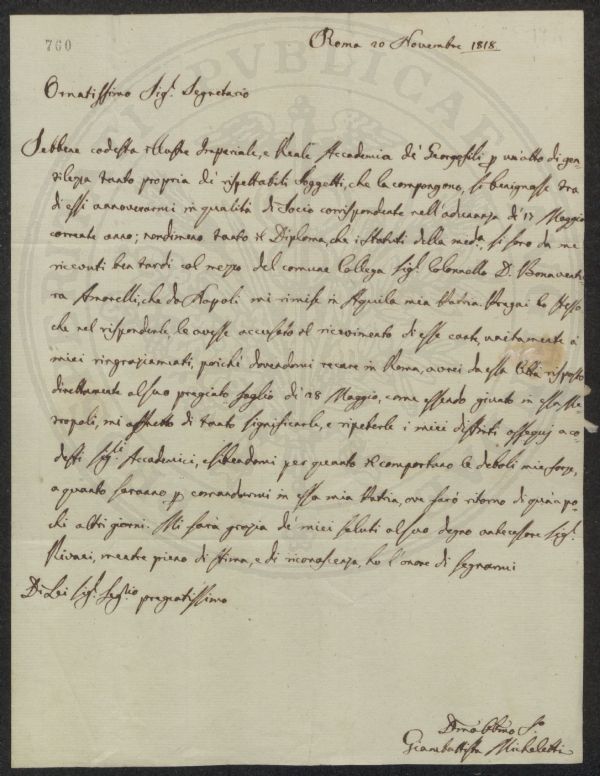 760
Roma 20 Novembre 1818.
Ornatissimo Sig.r Segretario
Sebbene codesta illustre Imperiale, e Reale Accademia de' Georgofili p un atto di gen-
tilezza tanto propria de' rispettabili Soggetti, che la compongono, si benignasse tra
di essi annoverarmi in qualità di Socio corrispondente nell'adunanza de' 17 Maggio
corrente anno; nondimeno tanto il Diploma, che i Statuti della med.a si sono da me
ricevuti ben tardi col mezzo del comune Collega Sig.r Colonnello D. Bonaventu-
ra Amorelli, che da Napoli mi rimise in Aquila mia Patria. Pregai lo stesso
che nel risponderle, le avesse accusato il ricevimento di esse carte unitamente a'
miei ringraziamenti, poiché dovendomi recare in Roma, avrei da essa Città risposto
direttamente al suo pregiato foglio de' 28 Maggio, come essendo giunto in essa Me-
tropoli, mi affretto di tanto significarle, e ripeterle i miei distinti ossequj a co-
desti Sig.li Accademici, esibendomi per quanto il comportano le deboli mie forze,
a quanto saranno p comandarmi in essa mia Patria, ove farò ritorno di quà a po-
chi altri giorni. Mi farà grazia de' miei saluti al suo degno antecessore Sig.r
mentre pieno di stima, e di riconoscenza, ho l'onore di segnarmi
Di Lei Sig.r Seg.rio pregiatissimo
Giambattista Micheletti